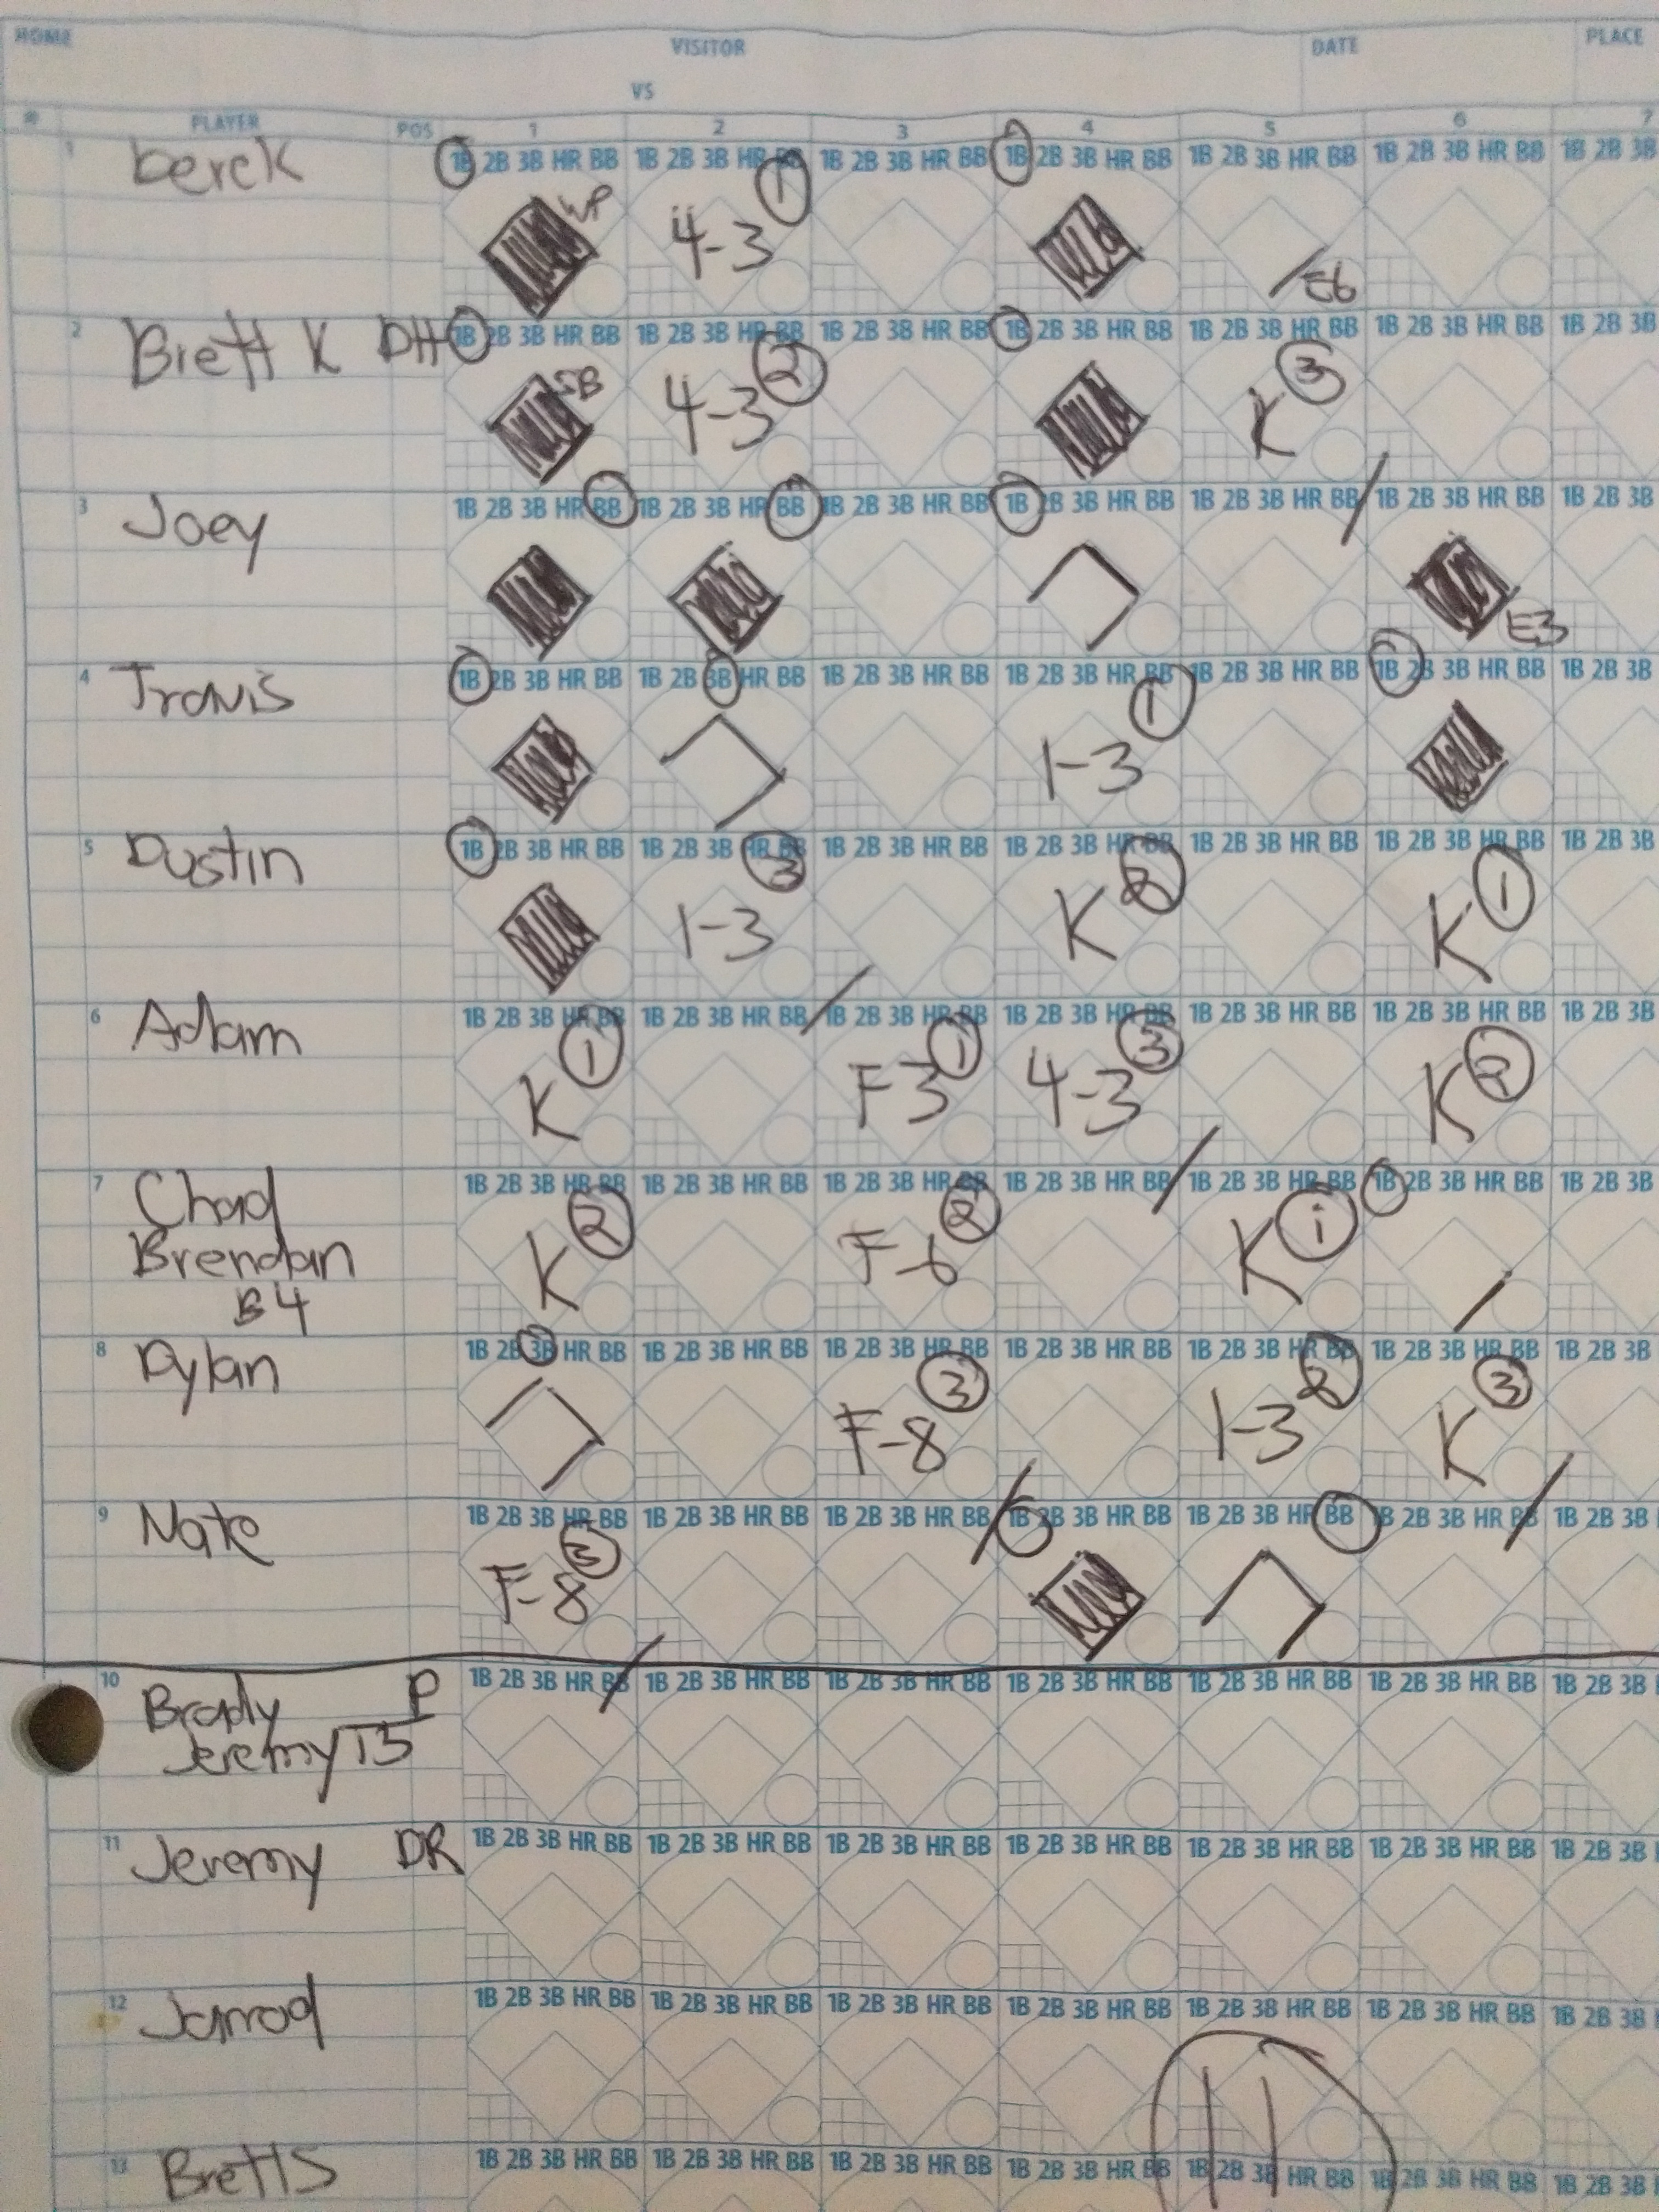 HOME VISITOR DATE PLACE
VS
# PLAYER POS 1 2 3 4 5 6 7
1 Derek 1B 2B 3B HR BB 1B 2B 3B HR BB 1B 2B 3B HR BB 1B 2B 3B HR BB 1B 2B 3B HR BB 1B 2B 3B HR BB 1B 2B 3B
WP 4-3 1 E6
2 Brett K DH 1B 2B 3B HR BB 1B 2B 3B HR BB 1B 2B 3B HR BB 1B 2B 3B HR BB 1B 2B 3B HR BB 1B 2B 3B HR BB 1B 2B 3B
SB 4-3 2 K 3
3 Joey 1B 2B 3B HR BB 1B 2B 3B HR BB 1B 2B 3B HR BB 1B 2B 3B HR BB 1B 2B 3B HR BB 1B 2B 3B HR BB 1B 2B 3B
E3
4 Travis 1B 2B 3B HR BB 1B 2B 3B HR BB 1B 2B 3B HR BB 1B 2B 3B HR BB 1B 2B 3B HR BB 1B 2B 3B HR BB 1B 2B 3B
1-3 1
5 Dustin 1B 2B 3B HR BB 1B 2B 3B HR BB 1B 2B 3B HR BB 1B 2B 3B HR BB 1B 2B 3B HR BB 1B 2B 3B HR BB 1B 2B 3B
1-3 3 K 2 K 1
6 Adam 1B 2B 3B HR BB 1B 2B 3B HR BB 1B 2B 3B HR BB 1B 2B 3B HR BB 1B 2B 3B HR BB 1B 2B 3B HR BB 1B 2B 3B
K 1 F 3 1 4-3 3 K 2
7 Chad 1B 2B 3B HR BB 1B 2B 3B HR BB 1B 2B 3B HR BB 1B 2B 3B HR BB 1B 2B 3B HR BB 1B 2B 3B HR BB 1B 2B 3B
Brendan K 2 F-6 2 K 1
B4
8 Dylan 1B 2B 3B HR BB 1B 2B 3B HR BB 1B 2B 3B HR BB 1B 2B 3B HR BB 1B 2B 3B HR BB 1B 2B 3B HR BB 1B 2B 3B
F-8 3 1-3 2 K 3
9 Nate 1B 2B 3B HR BB 1B 2B 3B HR BB 1B 2B 3B HR BB 1B 2B 3B HR BB 1B 2B 3B HR BB 1B 2B 3B HR BB 1B 2B 3B
F-8 3
10 Brady P 1B 2B 3B HR BB 1B 2B 3B HR BB 1B 2B 3B HR BB 1B 2B 3B HR BB 1B 2B 3B HR BB 1B 2B 3B HR BB 1B 2B 3B
Jeremy T3
11 Jeremy DR 1B 2B 3B HR BB 1B 2B 3B HR BB 1B 2B 3B HR BB 1B 2B 3B HR BB 1B 2B 3B HR BB 1B 2B 3B HR BB 1B 2B 3B
12 Jarrod 1B 2B 3B HR BB 1B 2B 3B HR BB 1B 2B 3B HR BB 1B 2B 3B HR BB 1B 2B 3B HR BB 1B 2B 3B HR BB 1B 2B 3B
11
13 Brett S 1B 2B 3B HR BB 1B 2B 3B HR BB 1B 2B 3B HR BB 1B 2B 3B HR BB 1B 2B 3B HR BB 1B 2B 3B HR BB 1B 2B 3B